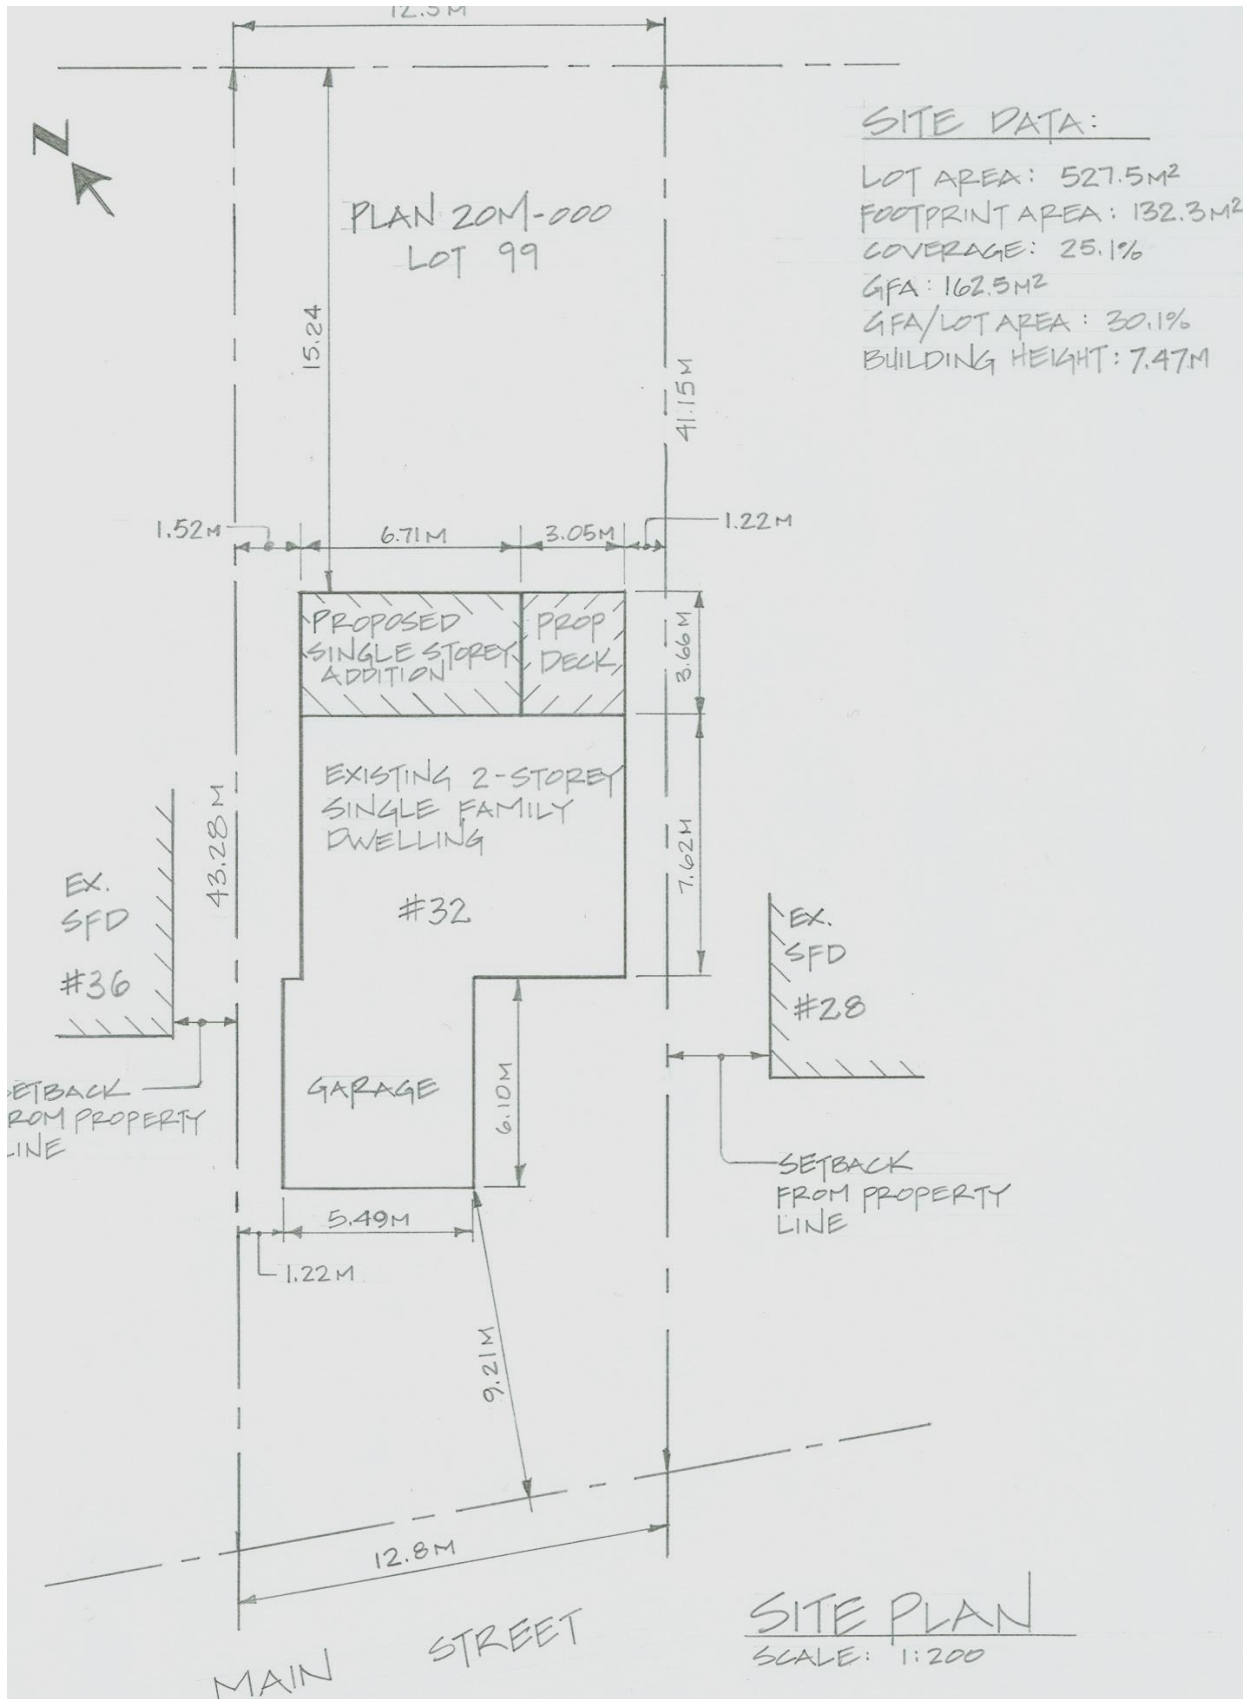 12.5M
N
SITE DATA:
LOT AREA: 527.5M²
FOOTPRINT AREA: 132.3M²
COVERAGE: 25.1%
GFA: 162.5M²
GFA/LOT AREA: 30.1%
BUILDING HEIGHT: 7.47M
PLAN 20M-000
LOT 99
15.24
41.15M
1.52M
6.71M
3.05M
1.22M
PROPOSED
SINGLE STOREY
ADDITION
PROP
DECK
3.66M
EXISTING 2-STOREY
SINGLE FAMILY
DWELLING
#32
7.62M
43.28M
EX.
SFD
#36
EX.
SFD
#28
SETBACK
FROM PROPERTY
LINE
GARAGE
6.10M
SETBACK
FROM PROPERTY
LINE
5.49M
1.22M
9.21M
12.8M
MAIN STREET
SITE PLAN
SCALE: 1:200